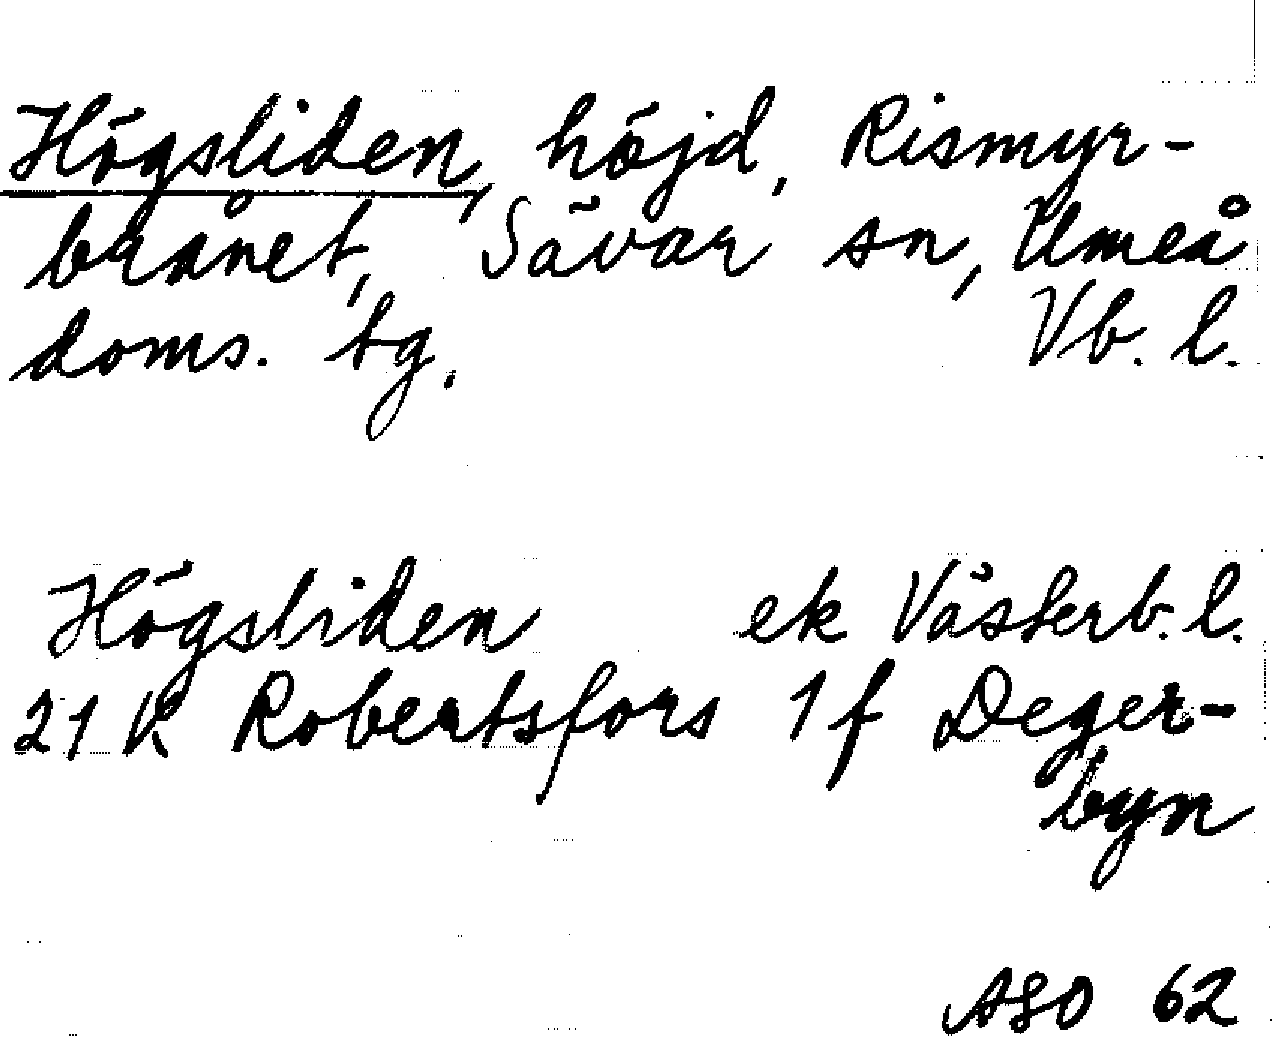 Högsliden, höjd, Rismyr-
brånet, Sävar sn, Umeå
doms. tg. Vb. l.
Högsliden ek Västerb. l.
21 K Robertsfors 1 f Deger-
byn
ASO 62